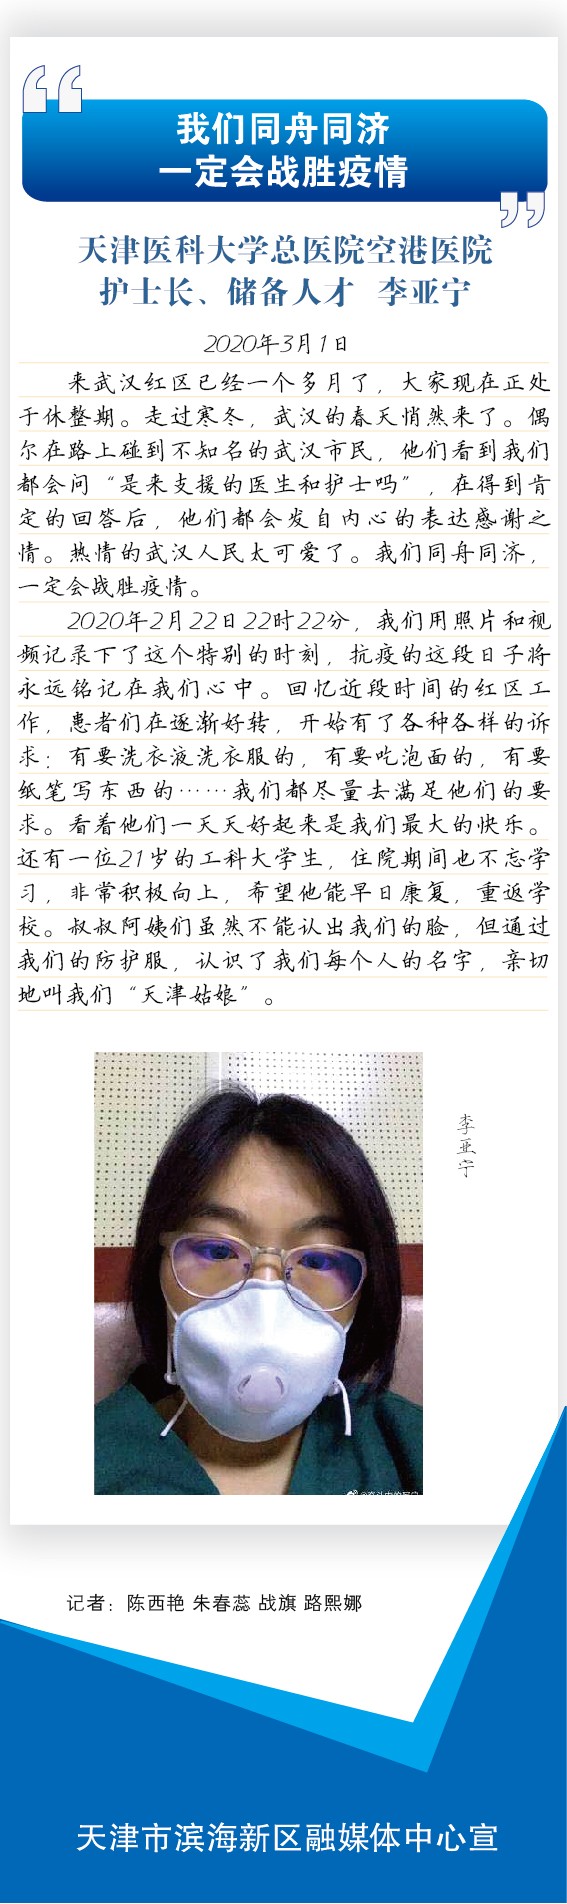 我们同舟同济
一定会战胜疫情
天津医科大学总医院空港医院
护士长、储备人才 李亚宁
2020年3月1日
来武汉红区已经一个多月了，大家现在正处
于休整期。走过寒冬，武汉的春天悄然来了。偶
尔在路上碰到不知名的武汉市民，他们看到我们
都会问“是来支援的医生和护士吗”，在得到肯
定的回答后，他们都会发自内心的表达感谢之
情。热情的武汉人民太可爱了。我们同舟同济，
一定会战胜疫情。
2020年2月22日22时22分，我们用照片和视
频记录下了这个特别的时刻，抗疫的这段日子将
永远铭记在我们心中。回忆近段时间的红区工
作，患者们在逐渐好转，开始有了各种各样的诉
求：有要洗衣液洗衣服的，有要吃泡面的，有要
纸笔写东西的……我们都尽量去满足他们的要
求。看着他们一天天好起来是我们最大的快乐。
还有一位21岁的工科大学生，住院期间也不忘学
习，非常积极向上，希望他能早日康复，重返学
校。叔叔阿姨们虽然不能认出我们的脸，但通过
我们的防护服，认识了我们每个人的名字，亲切
地叫我们“天津姑娘”。
李亚宁
记者：陈西艳 朱春蕊 战旗 路熙娜
天津市滨海新区融媒体中心宣